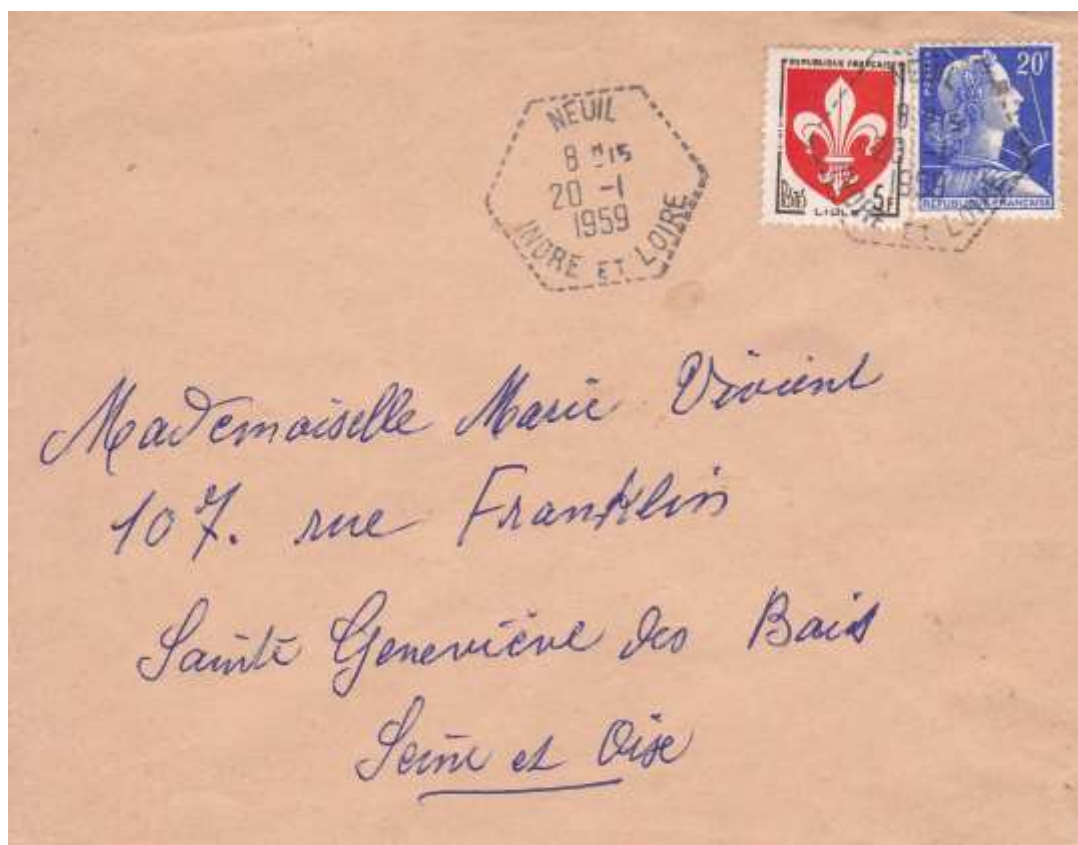 NEUIL
8 H15
20 -1
1959
INDRE ET LOIRE
REPUBLIQUE FRANÇAISE
5F
LILLE
POSTES
20F
REPUBLIQUE FRANÇAISE
Mademoiselle Marie Vivient
107. rue Franklin
Sainte Geneviève des Bois
Seine et Oise